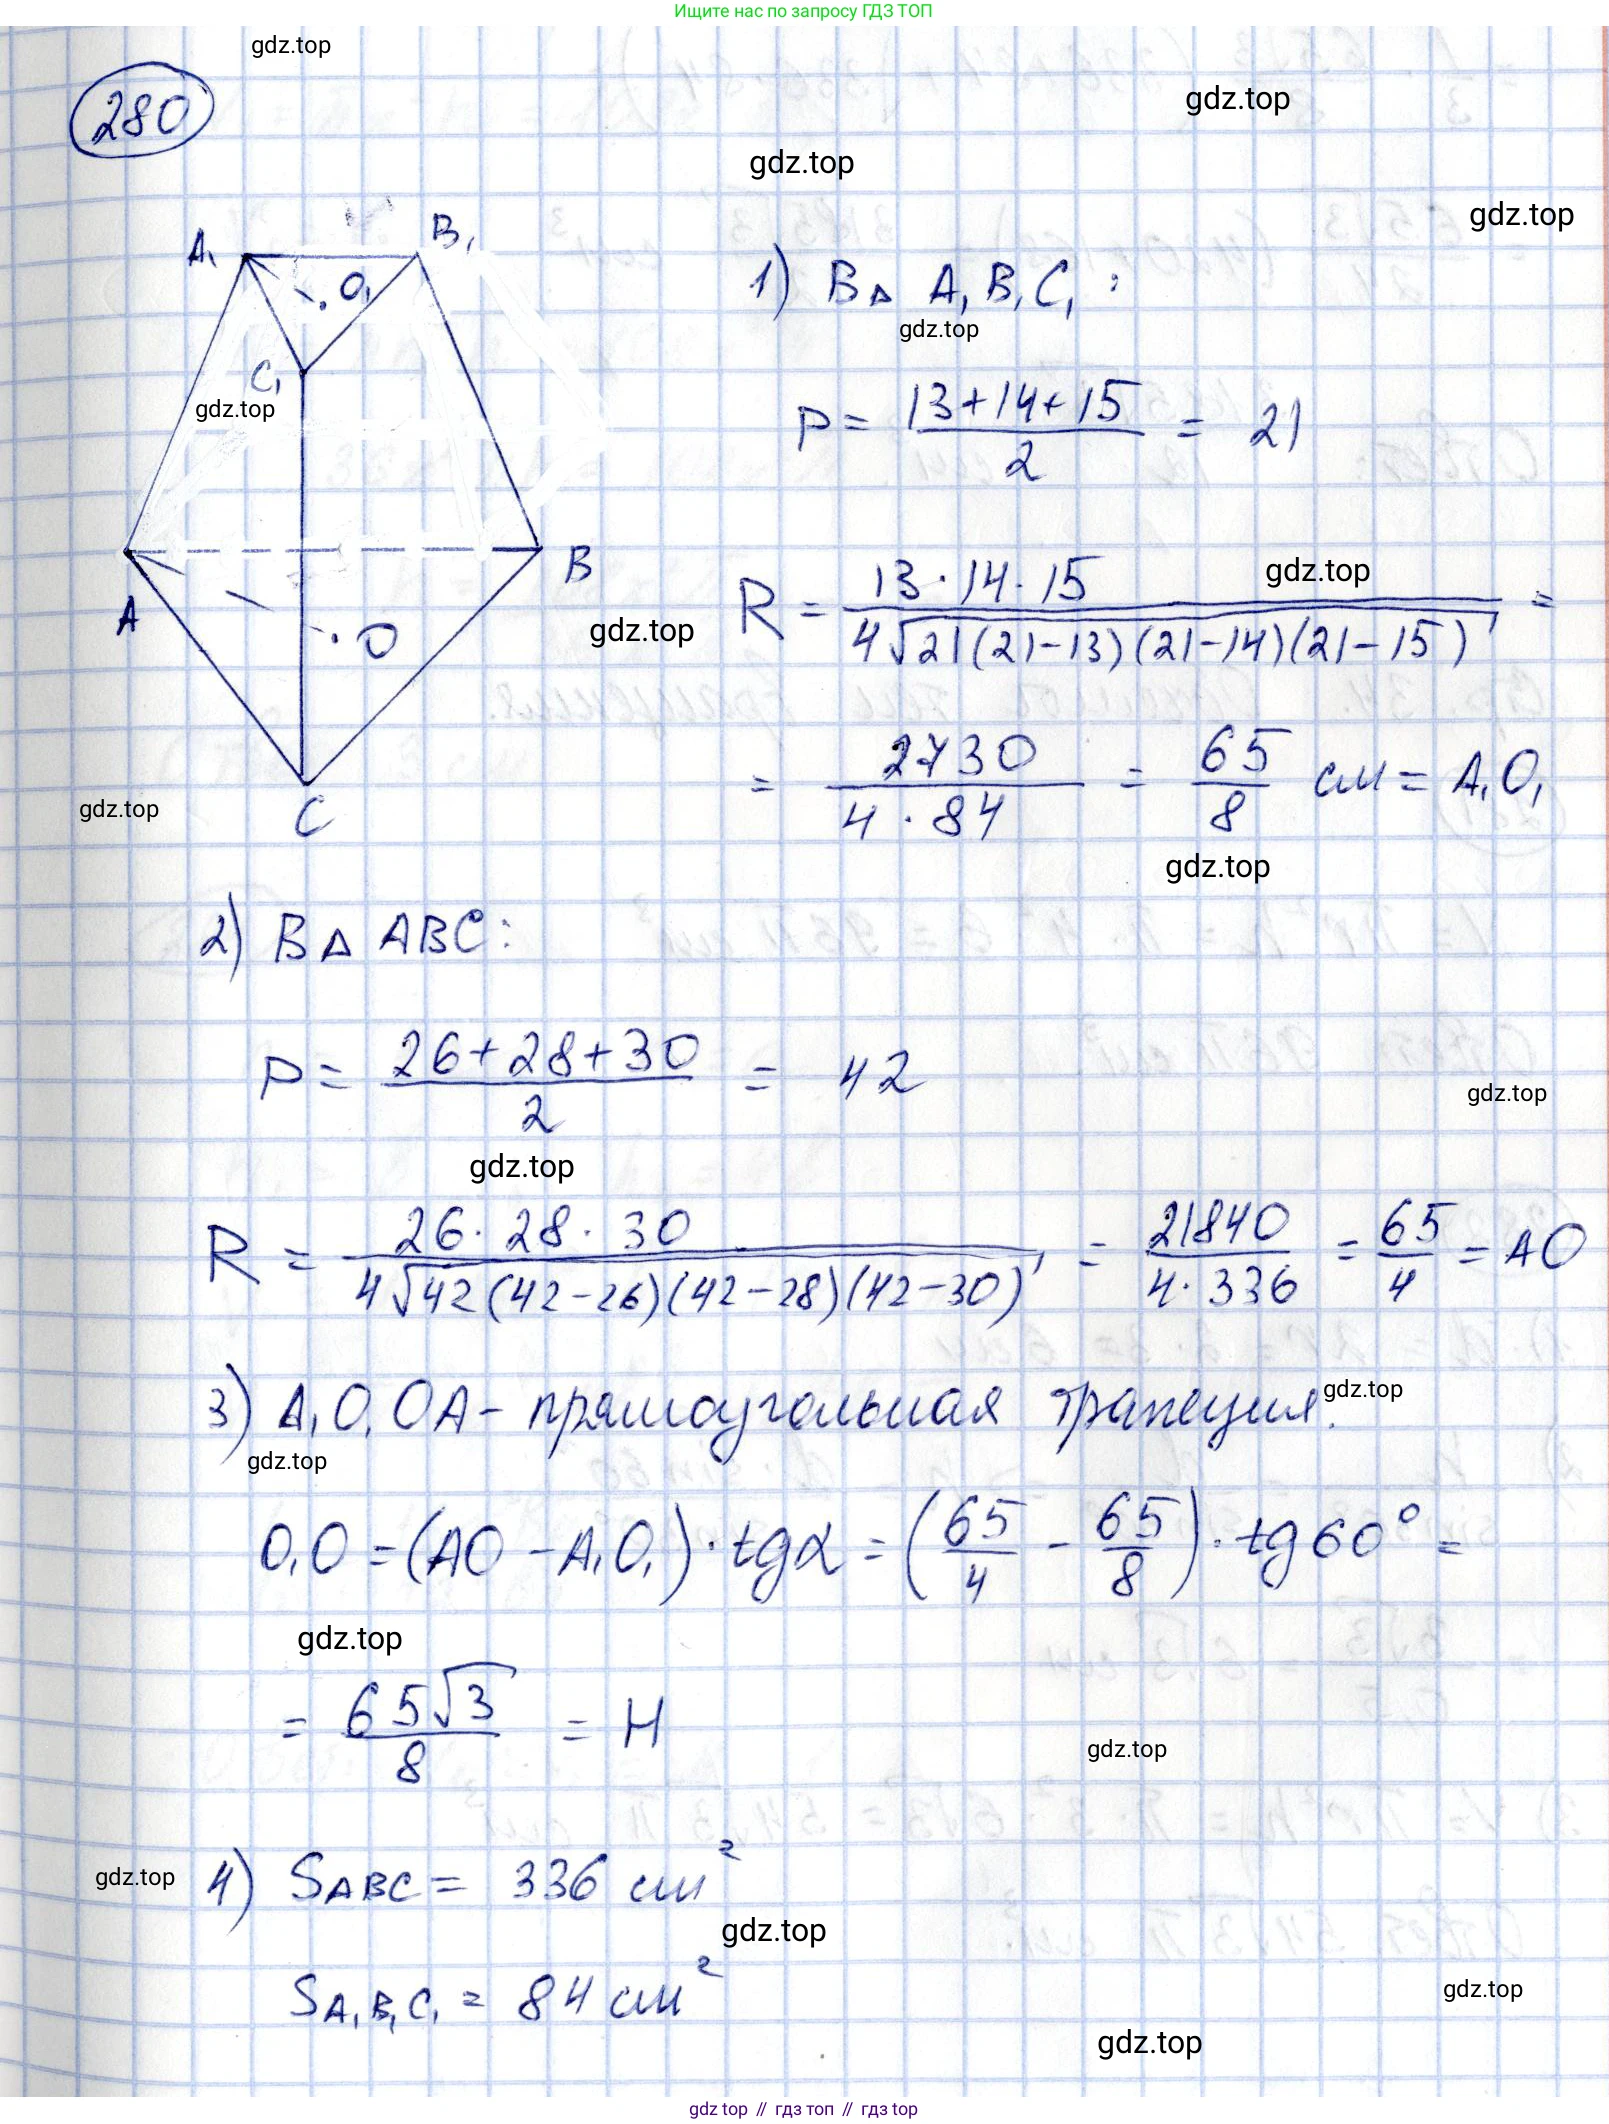 Ищите нас по запросу ГДЗ ТОП
gdz.top
280
gdz.top
gdz.top
gdz.top
A₁ B₁
O₁
C₁
gdz.top
A B
O
C
gdz.top
1) В △ A₁B₁C₁:
gdz.top
P = (13+14+15)/2 = 21
R = (13·14·15)/(4√(21(21-13)(21-14)(21-15))) =
gdz.top
gdz.top
= 2730/(4·84) = 65/8 см = A₁O₁
gdz.top
2) В △ ABC:
P = (26+28+30)/2 = 42
gdz.top
gdz.top
R = (26·28·30)/(4√(42(42-26)(42-28)(42-30))) = 21840/(4·336) = 65/4 = AO
3) A₁O₁OA - прямоугольная трапеция.
gdz.top
gdz.top
O₁O = (AO - A₁O₁)·tgα = (65/4 - 65/8)·tg60° =
gdz.top
= 65√3/8 = H
gdz.top
gdz.top
4) S_ABC = 336 см²
gdz.top
S_A₁B₁C₁ = 84 см²
gdz.top
gdz.top
gdz top // гдз топ // гдз top